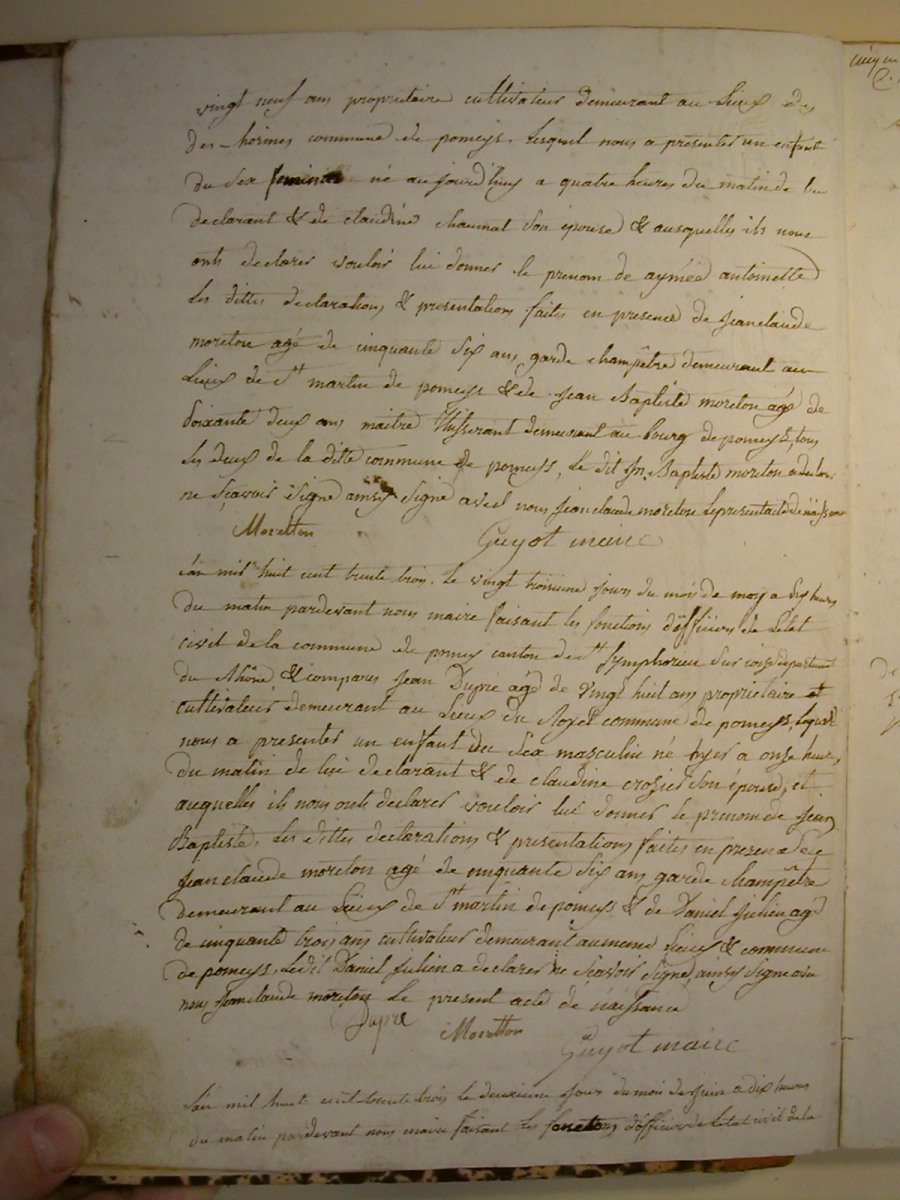 vingt neuf ans propriétaire cultivateur demeurant au Lieux des
des hormes commune de pomeys, lesquel nous a presenter un enfant
du Sex feminin né aujourd'huy a quatre heures du matin de lui
declarant & de claudine chaumat son epouse & ausquelles ils nous
onts declarer vouloir lui donner le prenom de aymée antoinette
les dittes declarations & presentations faites en presence de jean claude
moreton agé de cinquante Six ans garde champêtre demeurant au
Lieux de St martin de pomeys & de Jean Baptiste moreton agé de
Soixante deux ans maitre Thisserant demeurant au bourg de pomeys, tous
les deux de la ditte commune de pomeys, le dit jn Baptiste moreton a declarer
ne Scavoir Signé ainsy Signé avec nous jean claude moreton le present acte de naissance
Moretton
Guyot maire
L'an mil huit cent trente trois, le vingt troisieme jours du mois de may a dix heures
du matin pardevant nous maire faisant les fonctions d'officiers de l'etat
civil de la commune de pomey canton de St Symphorien sur coise departement
du Rhône & comparus Jean Dupré agé de vingt huit ans propriétaire et
cultivateur demeurant au Lieux du Royet commune de pomeys, lequel
nous a presenter un enfant du Sex masculin né hyer a onze heures
du matin de lui declarant & de claudine crosier son épouse, et
auquelles ils nous onts declarer vouloir lui donner le prenom de jean
Baptiste, les dittes declarations & presentations faites en presence de
jean claude moreton agé de cinquante Six ans garde champêtre
demeurant au Lieux de St martin de pomeys & de Daniel Julien agé
de cinquante trois ans cultivateur demeurant au meme Lieux & commune
de pomeys, le dit Daniel Julien a declarer ne Scavoir Signé, ainsy Signé avec
nous jean claude moreton le present acte de naissance
Dupre
Moretton
Guyot maire
L'an mil huit cent trente trois le deuxieme jour du mois de juin a dix heures
du matin pardevant nous maire faisant les fonctions d'officiers de l'etat civil de la